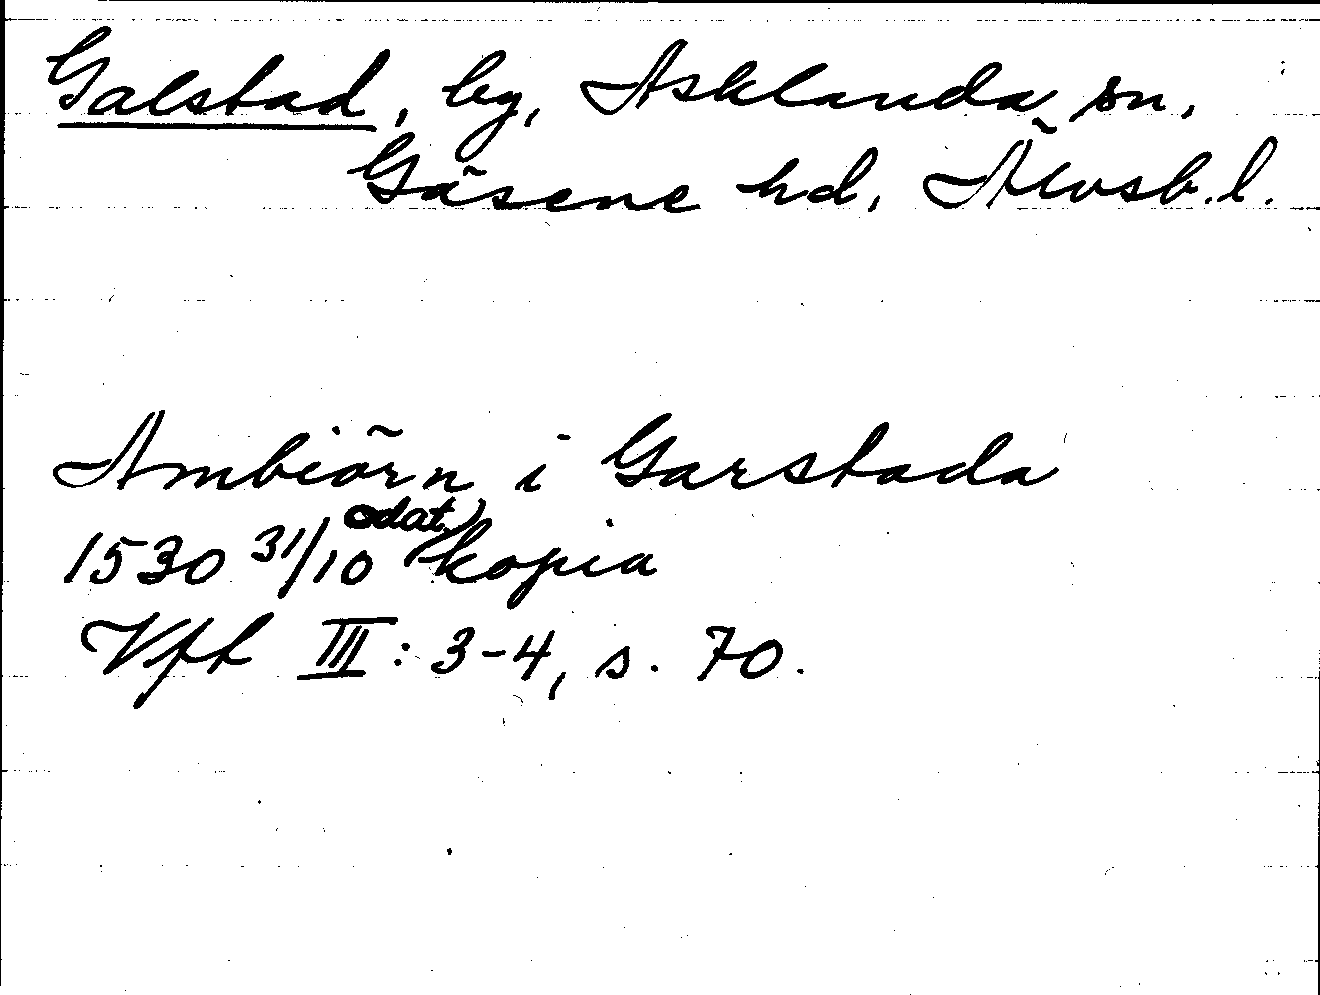 Galstad, by, Asklanda sn,
Gäsene hd, Älvsb. l.
Ambiörn i Garstada
1530 31/10 odat. kopia
Vft III: 3-4, s. 70.